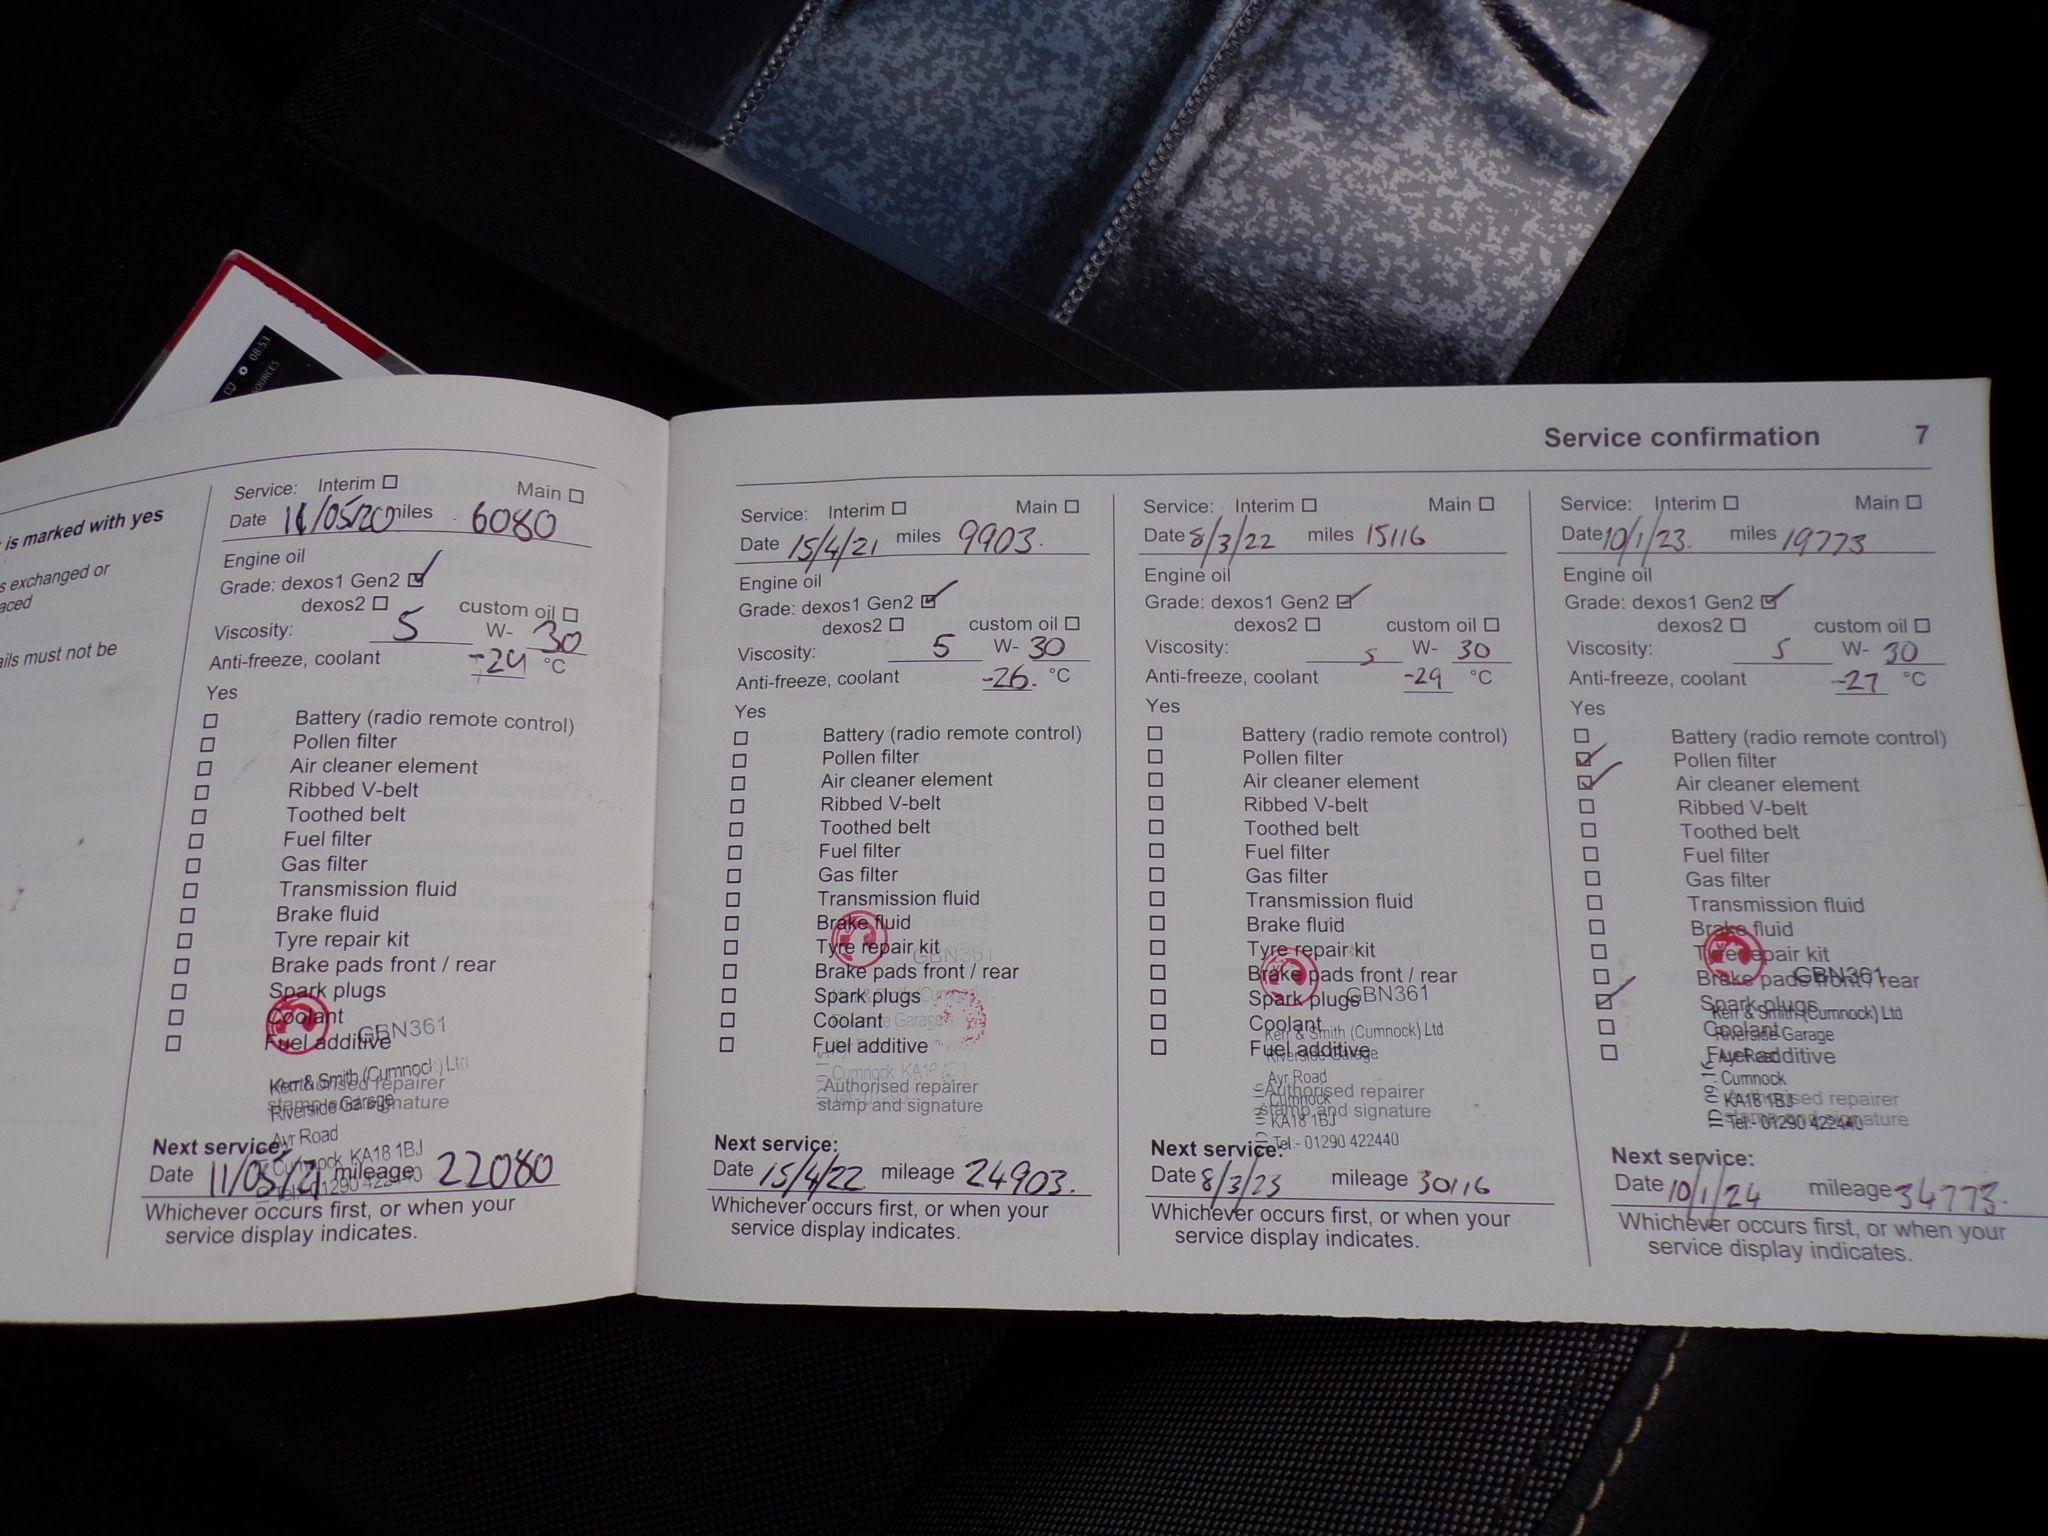 08:53
Service confirmation 7
is marked with yes
s exchanged or
aced
ails must not be
Service: Interim Main
Date 11/05/20 miles 6080
Engine oil
Grade: dexos1 Gen2
dexos2 custom oil
Viscosity: 5 W- 30
Anti-freeze, coolant °C
Yes
Battery (radio remote control)
Pollen filter
Air cleaner element
Ribbed V-belt
Toothed belt
Fuel filter
Gas filter
Transmission fluid
Brake fluid
Tyre repair kit
Brake pads front / rear
Spark plugs
Coolant
GBN361
Fuel additive
Kerr & Smith (Cumnock) Ltd
Authorised repairer
Riverside Garage
stamp and signature
Ayr Road
Next service:
Cumnock KA18 1BJ
Date 11/05/21 mileage 22080
Tel:- 01290 422440
Whichever occurs first, or when your
service display indicates.
Service: Interim Main
Date 15/4/21 miles 9903.
Engine oil
Grade: dexos1 Gen2
dexos2 custom oil
Viscosity: 5 W- 30
Anti-freeze, coolant -26. °C
Yes
Battery (radio remote control)
Pollen filter
Air cleaner element
Ribbed V-belt
Toothed belt
Fuel filter
Gas filter
Transmission fluid
Brake fluid
Tyre repair kit
GBN361
Brake pads front / rear
Spark plugs
Coolant
Fuel additive
Cumnock KA18 1BJ
Authorised repairer
stamp and signature
Next service:
Date 15/4/22 mileage 24903.
Whichever occurs first, or when your
service display indicates.
Service: Interim Main
Date 8/3/22 miles 15116
Engine oil
Grade: dexos1 Gen2
dexos2 custom oil
Viscosity: 5 W- 30
Anti-freeze, coolant -29 °C
Yes
Battery (radio remote control)
Pollen filter
Air cleaner element
Ribbed V-belt
Toothed belt
Fuel filter
Gas filter
Transmission fluid
Brake fluid
Tyre repair kit
Brake pads front / rear
GBN361
Spark plugs
Coolant
Kerr & Smith (Cumnock) Ltd
Fuel additive
Riverside Garage
Ayr Road
Authorised repairer
Cumnock
stamp and signature
KA18 1BJ
Tel:- 01290 422440
Next service:
Date 8/3/23 mileage 30116
Whichever occurs first, or when your
service display indicates.
Service: Interim Main
Date 10/1/23. miles 19773
Engine oil
Grade: dexos1 Gen2
dexos2 custom oil
Viscosity: 5 W- 30
Anti-freeze, coolant -27 °C
Yes
Battery (radio remote control)
Pollen filter
Air cleaner element
Ribbed V-belt
Toothed belt
Fuel filter
Gas filter
Transmission fluid
Brake fluid
Tyre repair kit
GBN361
Brake pads front / rear
Spark plugs
Kerr & Smith (Cumnock) Ltd
Coolant
Riverside Garage
Fuel additive
Ayr Road
Cumnock
Authorised repairer
KA18 1BJ
stamp and signature
Tel:- 01290 422440
Next service:
Date 10/1/24 mileage 34773.
Whichever occurs first, or when your
service display indicates.